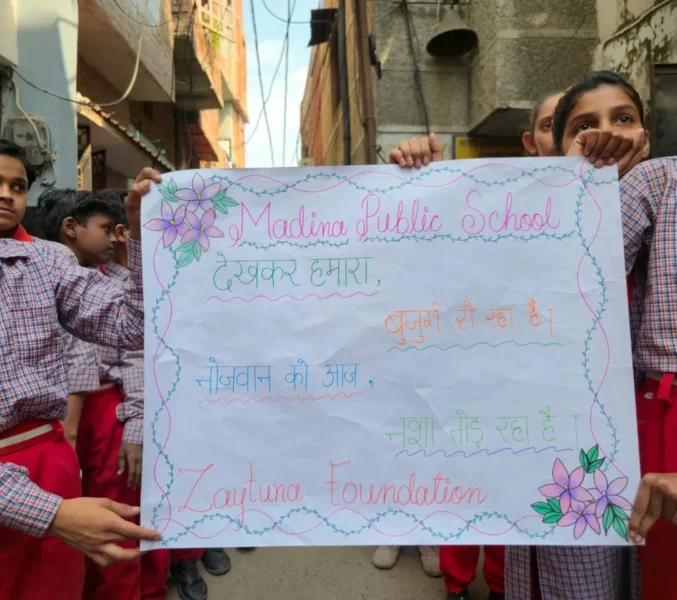 Madina Public School
देखकर हमारा,
बुजुर्ग रो रहा है।
नोजवान को आज,
नशा तोड़ रहा है।
Zaytuna Foundation